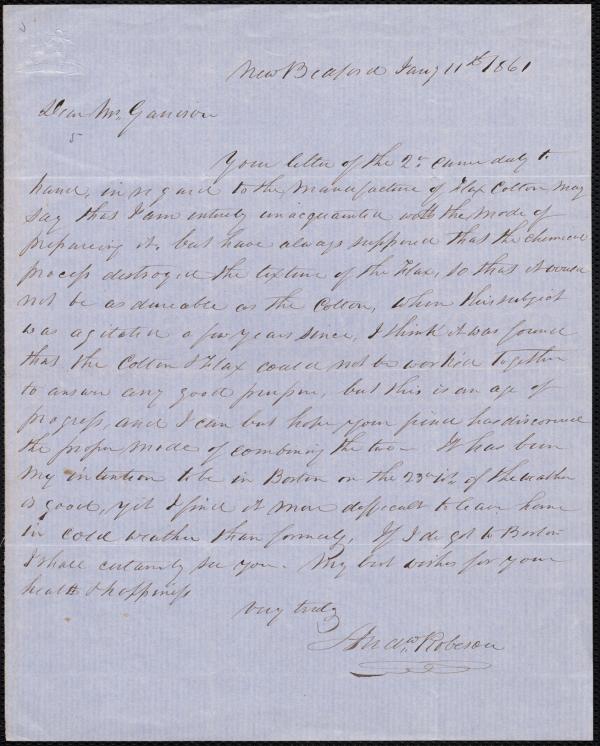 New Bedford Jany 11th 1861
Dear Mr. Garrison
Your letter of the 2d. came duly to
hand, in regard to the manufacture of Flax Cotton may
say that I am entirely unacquainted with the mode of
prepareing it, but have always supposed that the chemical
process destroyed the texture of the Flax, so that it would
not be as dureable as the Cotton, when this subject
was agitated a few years since, I think it was found
that the Cotton & Flax could not be worked together
to answer any good purpose, but this is an age of
progress, and I can but hope your friend has discovered
the proper mode of combining the two — It has been
my intention to be in Boston on the 23d if the weather
is good, yet I find it more difficult to leave home
in cold weather than formerly, If I do get to Boston
I shall certainly see you. My best wishes for your
health & happiness
Very truly
Andw. Robeson